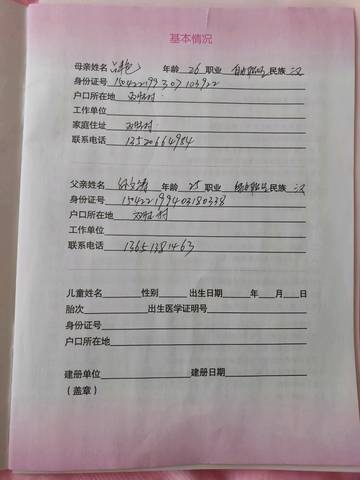 基本情况
母亲姓名 年龄 26 职业 自由职业 民族 汉
身份证号 150422199307103922
户口所在地
工作单位
家庭住址
联系电话 13520664984
父亲姓名 年龄 25 职业 民族 汉
身份证号 150422199403180338
户口所在地
工作单位
联系电话 13651381463
儿童姓名 性别 出生日期 年 月 日
胎次 出生医学证明号
身份证号
户口所在地
建册单位 建册日期
(盖章)